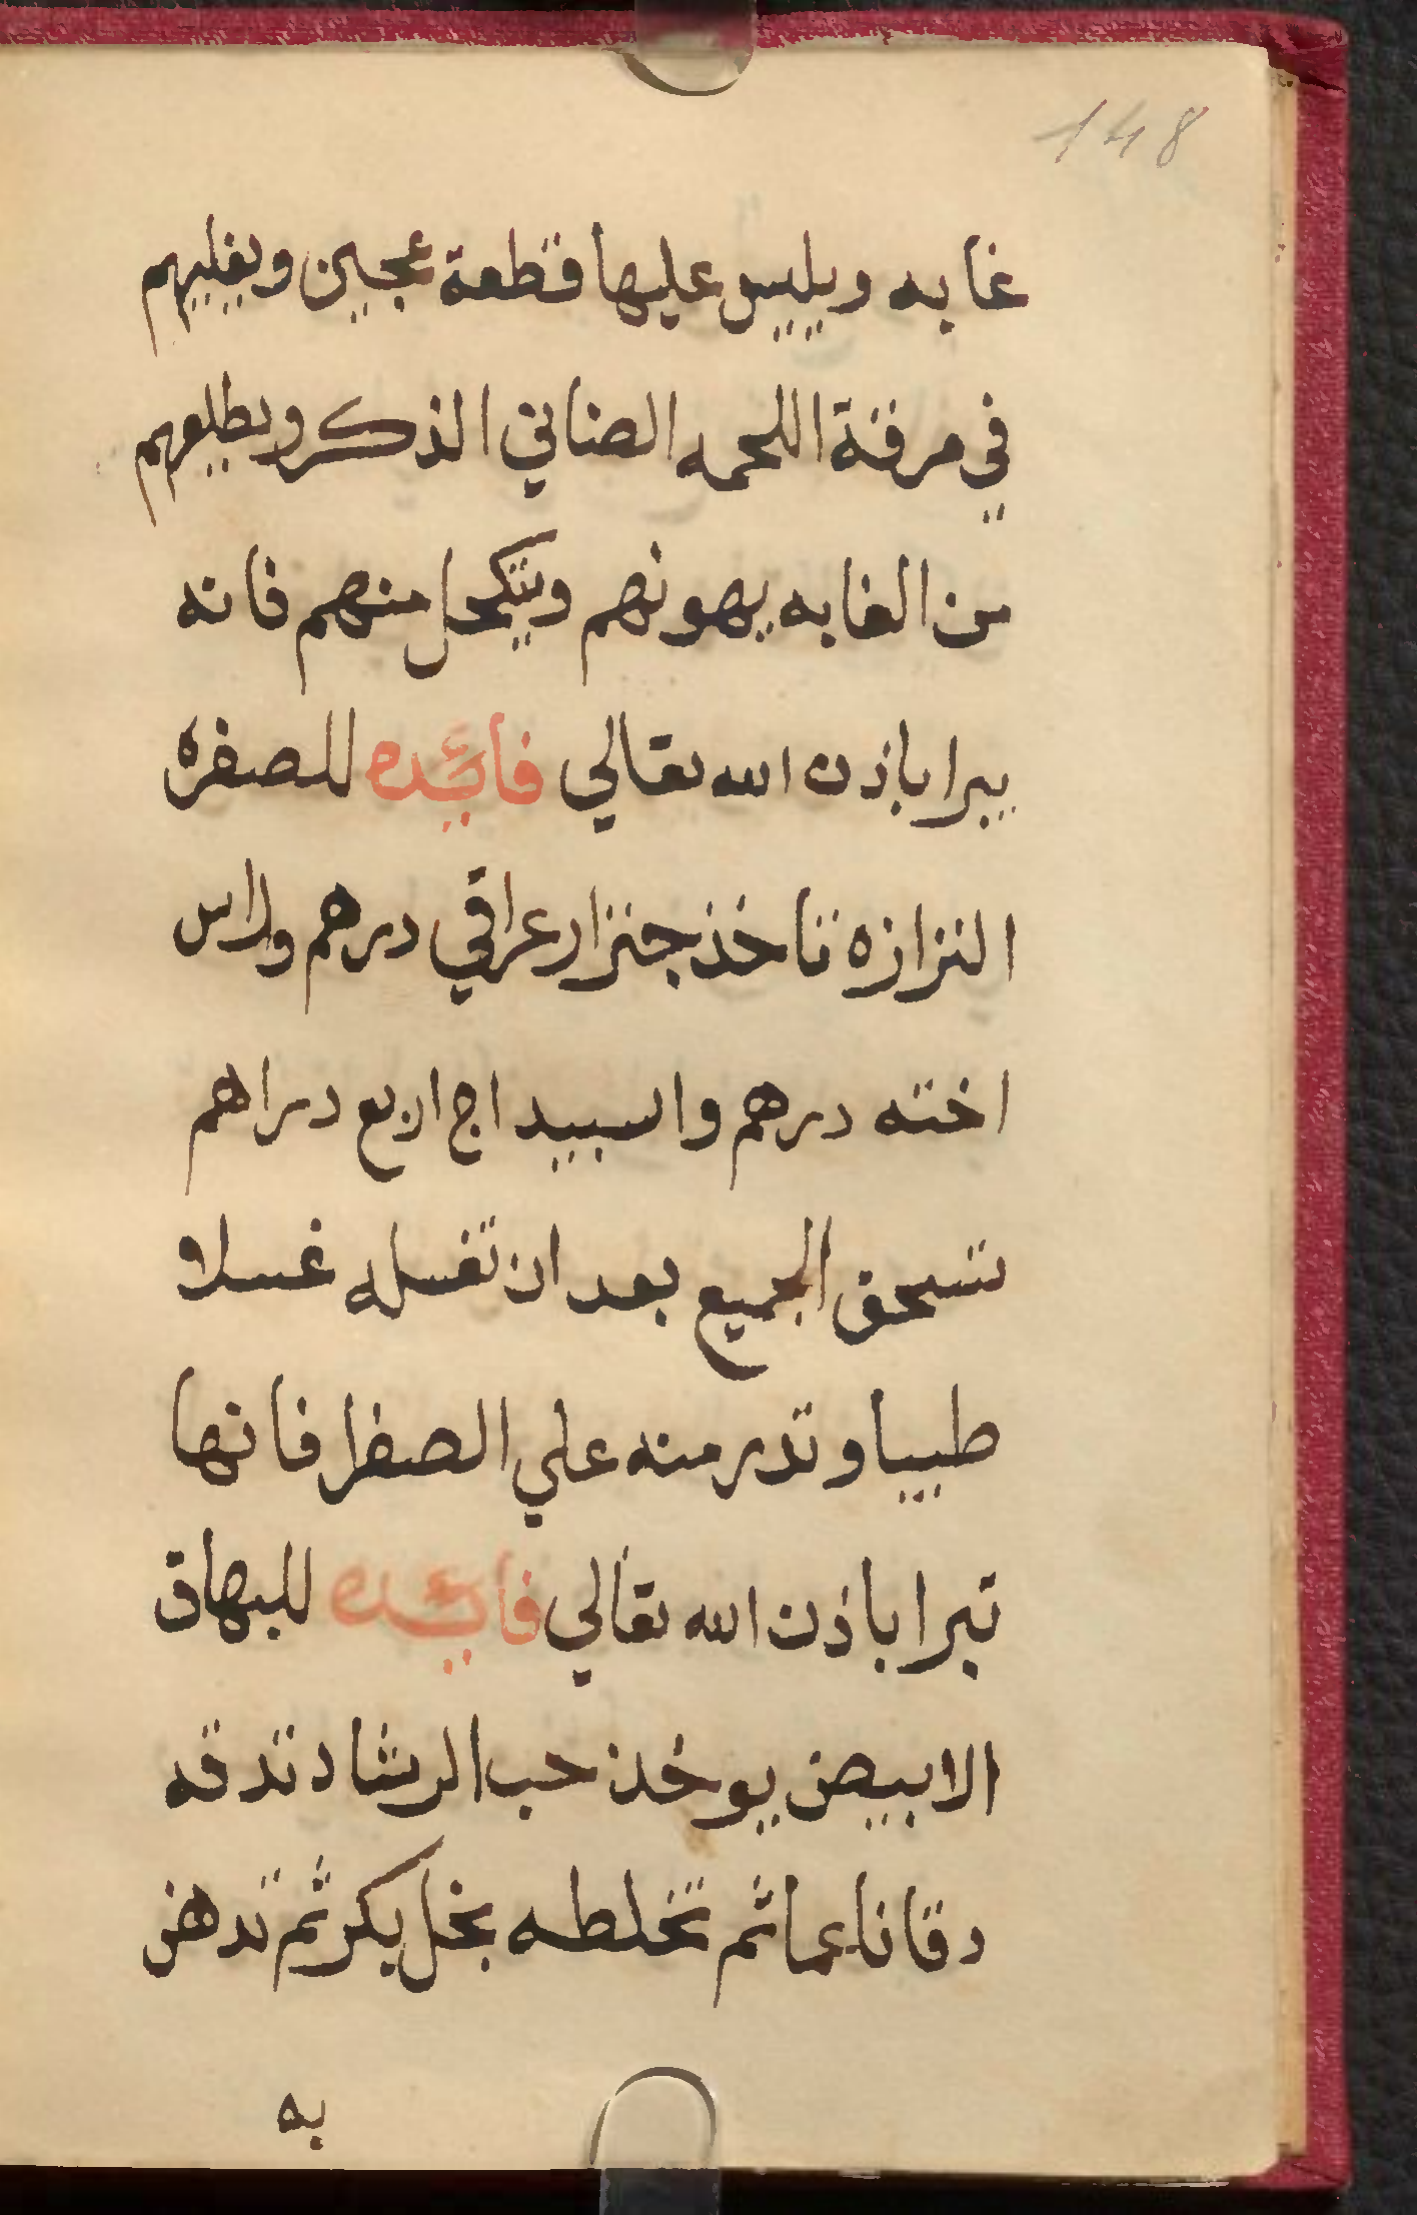 148
غابه ويليس عليها قطعة عجين ويغليهم
في مرقة اللحمه الضاني الذكر ويطلعهم
من الغابه يهونهم ويتكحل منهم فانه
يبرا باذن الله تعالي فائده للصفره
النزازه تاخذ جنزار عراقي درهم وراس
اخته درهم واسبيداج اربع دراهم
تسحق الجميع بعد ان تغسله غسلا
طيبا وتدر منه علي الصفرا فانها
تبرا باذن الله تعالي فائده للبهاق
الابيض يوخذ حب الرشاد تدقه
دقا ناعما ثم تخلطه بخل بكر ثم تدهن
به